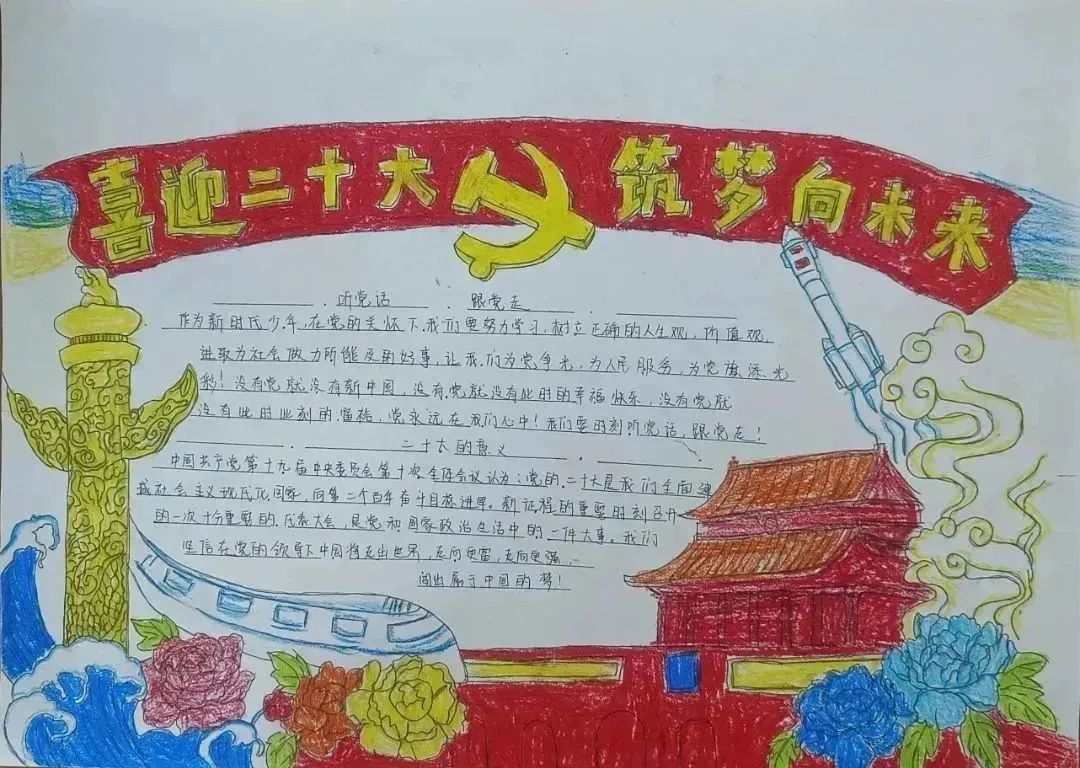 喜迎二十大 筑梦向未来
听党话 . 跟党走
作为新时代少年,在党的关怀下,我们要努力学习,树立正确的人生观,价值观,
进取为社会做力所能及的好事,让我们为党争光,为人民服务,为党旗添光
彩!没有党就没有新中国,没有党就没有此时的幸福快乐,没有党就
没有此时此刻的,党永远在我们心中!我们要时刻听党话、跟党走!
二十大的意义
中国共产党第十九届中央委员会第十次全体会议认为:党的二十大是我们全面建
成社会主义现代化国家,向第二个百年奋斗目标进军。新征程的重要时刻召开
的一次十分重要的代表大会,是党和国家政治生活中的一件大事。我们
坚信在党的领导下中国将走出世界,走向更富,走向更强,
闯出属于中国的梦!